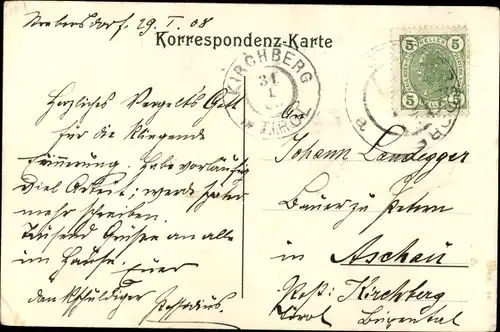 29. I. 08
Korrespondenz-Karte
KIRCHBERG
31
I
5 5
Herzliches Vergelt's Gott
für die klingende
Erinnerung. Habe vorläufig
viel Arbeit; werde später
mehr schreiben.
Tausend Grüße an alle
im Hause. Euer
dankschuldiger
An
Johann Landegger
Bauer zu
in Aschau
Post: Kirchberg
Tirol